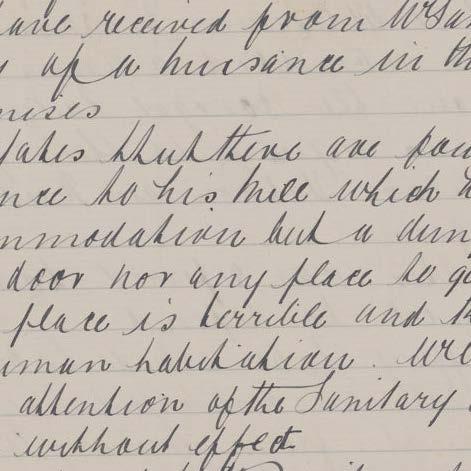 have received from Mr
of a nuisance in th
mises
states that there are
nce to his Mill which
mmodation but a
door nor any place to
place is terrible and
uman habitation.
attention of the Sanitary
without effect